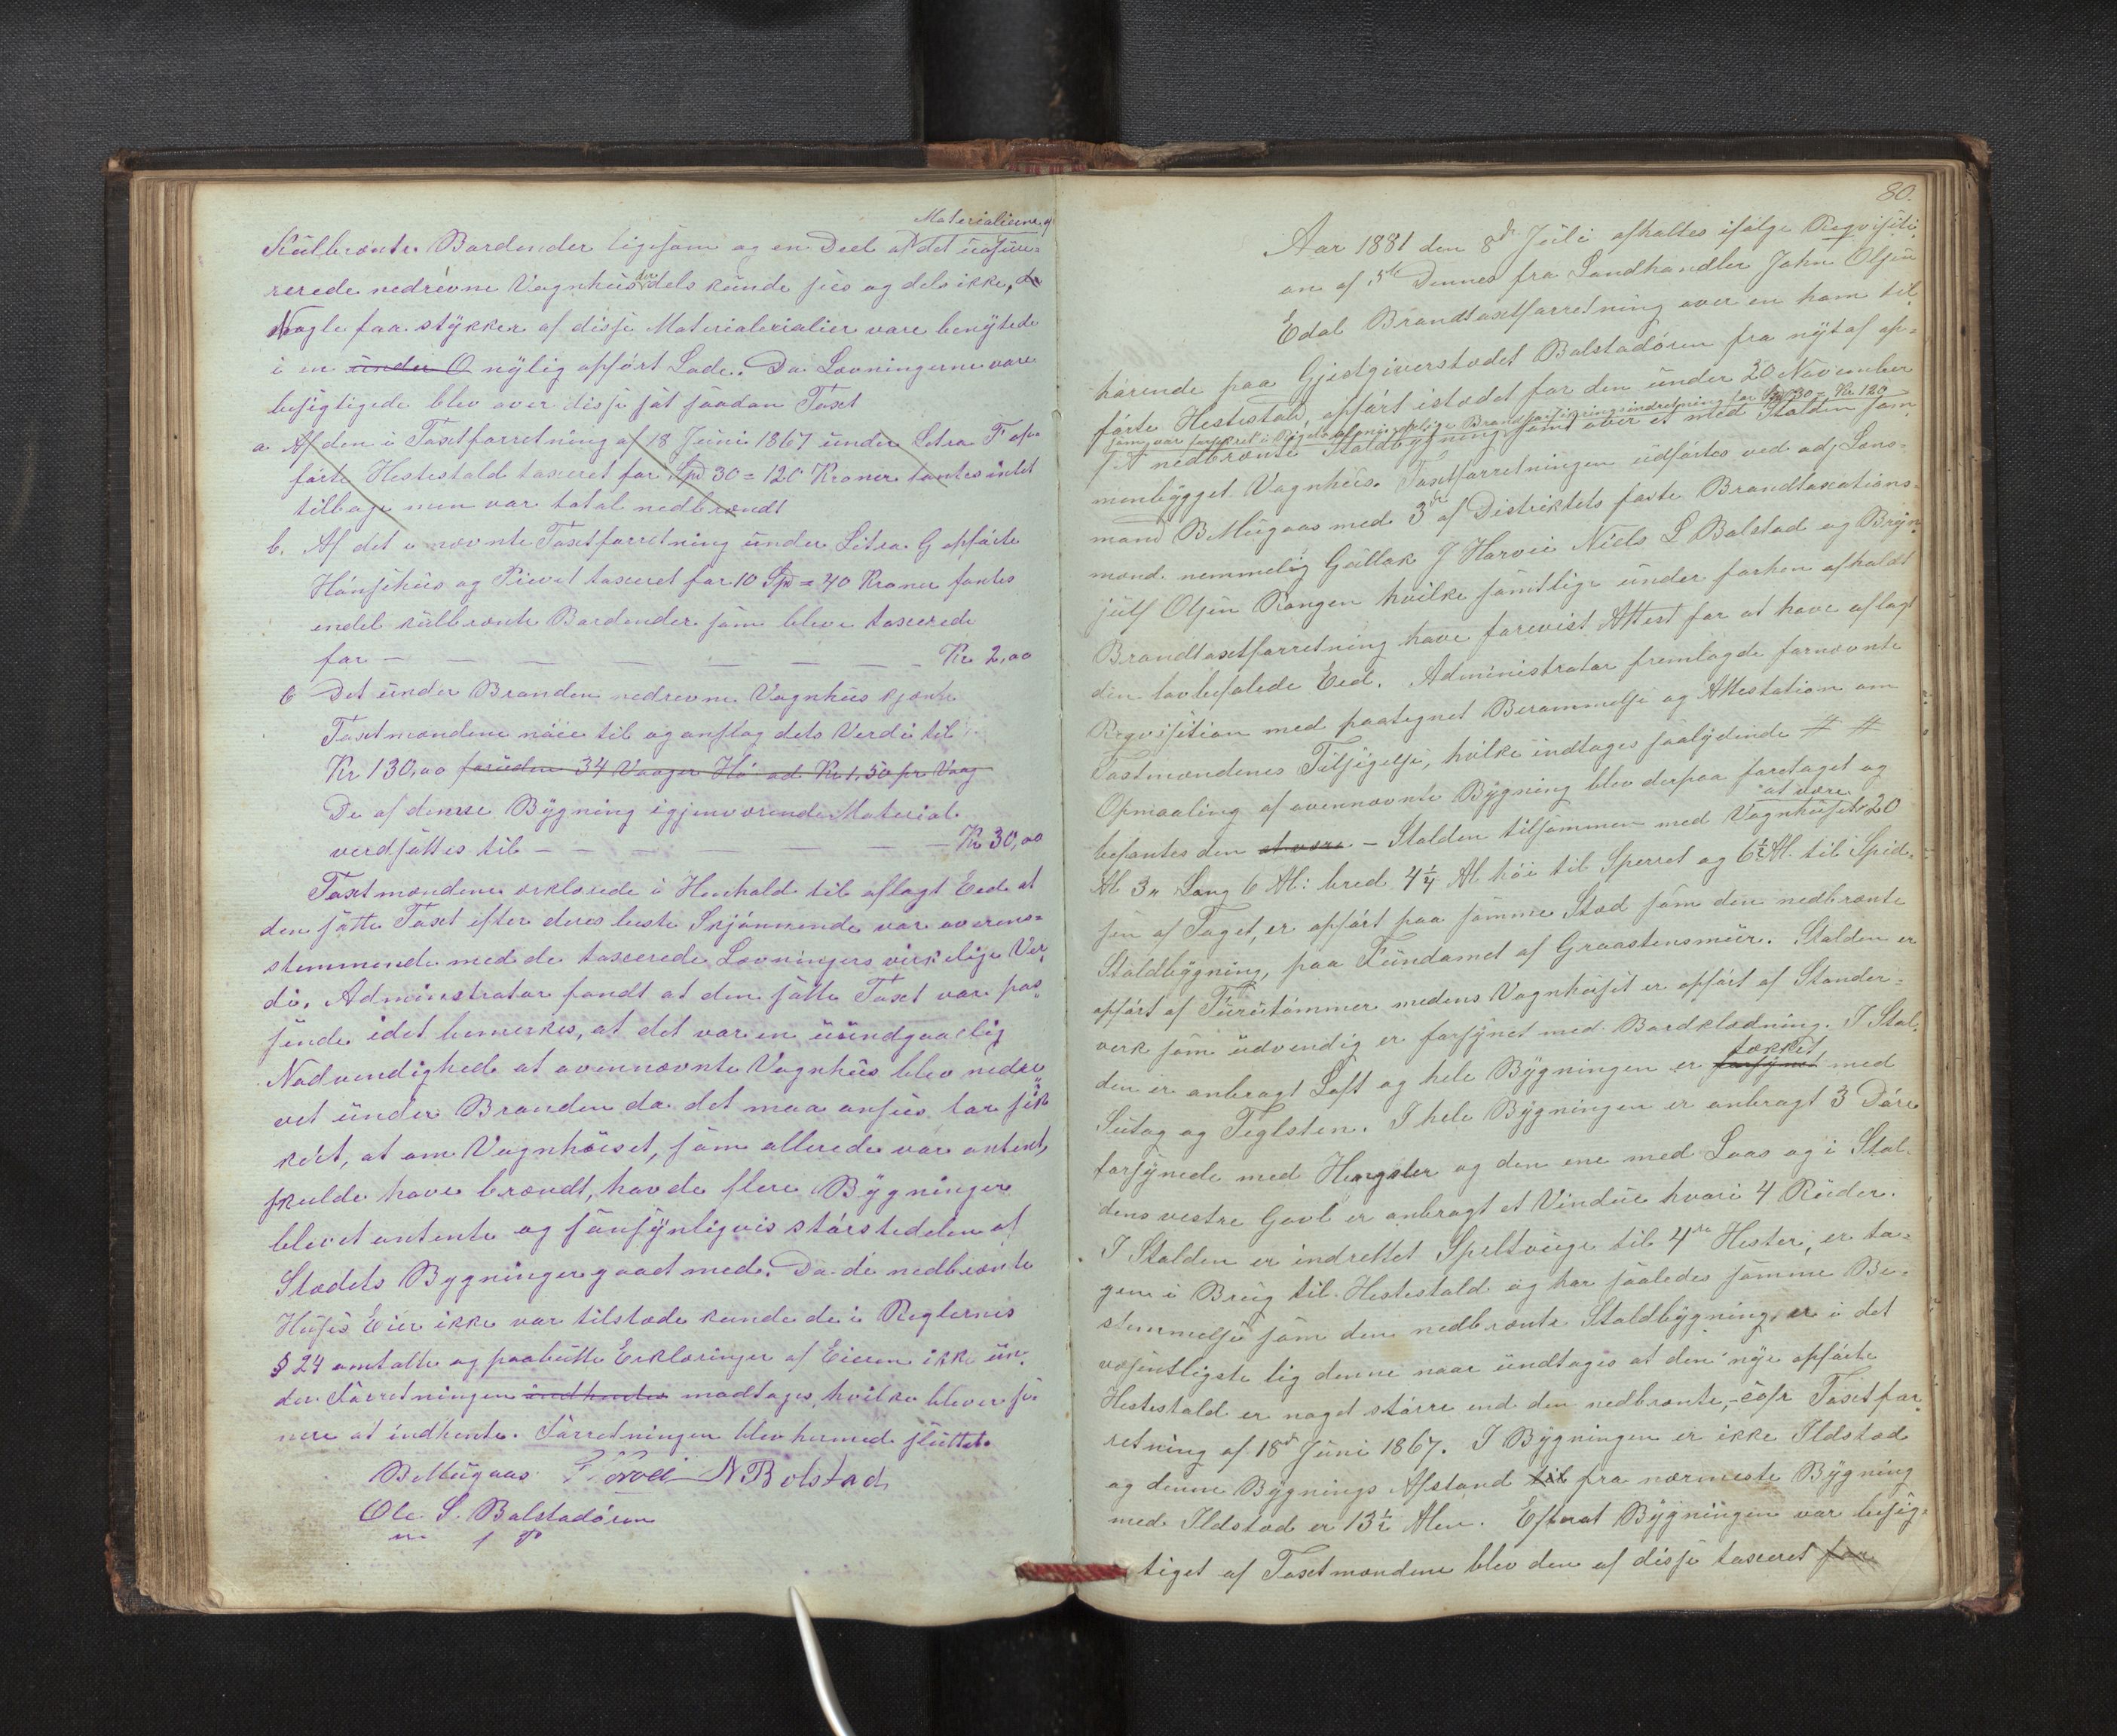 Materialierne af
Kulbrænte Bordender ligesom og en Deel af det uasqu-
rerede nedrevne Vognhus der dels kunde sees og dels ikke,
Nogle faa stykker af disse Materialerialier vare benyttede
i en under O nylig opført Lade. Da Levningerne vare
besigtigede blev over disse sat saadan Taxt
a. Af den i Taxtforretning af 18 Juni 1867 under Litra F op-
førte Hestestald taxeret for Spd 30 = 120 Kroner fantes intet
tilbage men var total nedbrændt
b. Af det i nævnte Taxtforretning under Litra G opførte
Hønsehus og Privet taxeret for 10 Spd = 40 Kroner fantes
endel kulbrænte Bordender som bleve taxerede
for — — — — — — — Kr 2,00
c Det under Branden nedrevne Vognhus kjendte
Taxtmændene nøie til og anslog dets Verdi til
Kr 130,00 foruden 34 Vaager Hø ad Kr 1,50 pr Vaag
De af denne Bygning igjenværende Material.
verdsættes til — — — — — — Kr 30,00
Taxtmændene erklærede i Henhold til aflagt Eed at
den satte Taxt efter deres beste Skjønnende var overens-
stemmende med de taxerede Levningers virkelige Ver-
di. Administrator fandt at den satte Taxt var pas-
sende idet bemerkes, at det var en uundgaaelig
Nødvendighed at ovennævnte Vognhus blev nedre-
vet under Branden da det maa ansees for sik-
kert, at om Vognhuset, som allerede var antent,
skulde have brændt, havde flere Bygninger
blevet antente og sansynligvis størstedelen af
Stedets Bygninger gaaet med. Da de nedbrænte
Huses Eier ikke var tilstede kunde de i Reglernes
§ 24 omtalte og paabudte Erklæringer af Eieren ikke un-
der Forretningen indhentes modtages, hvilke bliver se-
nere at indhente. Forretningen blev hermed sluttet.
B Mugaas G Horvei N Bolstad
Ole S. Bolstadøren
m f P
80.
Aar 1881 den 8de Juli afholdtes ifølge Reqvisiti-
on af 5te Dennes fra Landhandler John Olsen
Edal Brandtaxtforretning over en ham til-
hørende paa Gjestgiverstedet Bolstadøren fra nyt af op-
førte Hestestald, opført istedet for den under 20 November
som var forsikret i Rigets almindelige Brandforsikringsindretning for Spd 30 = Kr 120
f A nedbrænte Staldbygning samt over et med Stalden sam-
menbygget Vognhus. Taxtforretningen udførtes ved adj Lens-
mand B Mugaas med 3de af Distriktets faste Brandtaxations-
mænd nemmelig Gullak J Horvei Niels L Bolstad og Bryn-
julf Olsen Rongen hvilke samtlige under forhen afholdt
Brandtaxtforretning have forevist Attest for at have aflagt
den lovbefalede Eed. Administrator fremlagde fornævnte
Reqvisition med paategnet Berammelse og Attestation om
Taxtmændenes Tilsigelse, hvilke indtages saalydende # #
Opmaaling af ovennævnte Bygning blev derpaa foretaget og
at være
befantes den at være - Stalden tilsammen med Vognhuset 20
Al 3" Lang 6 Al: bred 4¼ Al høi til Sperret og 6½ Al. til Spid-
sen af Taget, er opført paa samme Sted som den nedbrænte
Staldbygning, paa Fundamet af Graastensmur. Stalden er
opført af Furutømmer medens Vognhuset er opført af Stander-
verk som udvendig er forsynet med Bordklædning. I Stal-
den er anbragt Loft og hele Bygningen er forsynet tækket med
Sutag og Teglsten. I hele Bygningen er anbragt 3 Døre
forsynede med Hengsler og den ene med Laas og i Stal-
dens vestre Gavl er anbragt et Vindue hvori 4 Ruder.
I Stalden er indrettet Speltouge til 4re Hester, er ta-
gen i Brug til Hestestald og har saaledes samme Be-
stemmelse som den nedbrænte Staldbygning, er i det
væsentligste lig denne naar undtages at den nye opførte
Hestestald er noget større end den nedbrænte, - cofr Taxtfor-
retning af 18de Juni 1867. I Bygningen er ikke Ildsted
og denne Bygnings Afstand til fra nærmeste Bygning
med Ildsted er 13½ Alen. Efterat Bygningen var besig-
tiget af Taxtmændene blev den af disse taxeret for